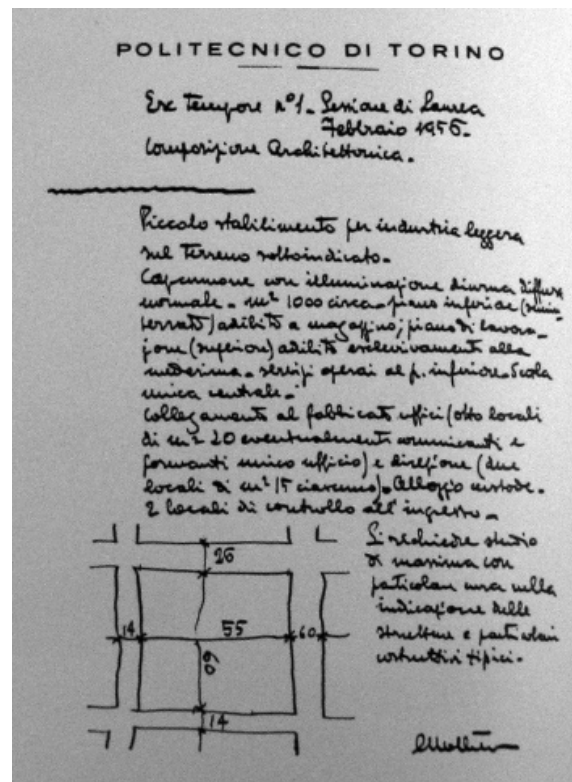 POLITECNICO DI TORINO
Ex Tempore n°1. Sessione di Laurea
Febbraio 1956.
Composizione Architettonica.
Piccolo stabilimento per industria leggera
sul terreno sottoindicato.
Capannone con illuminazione diurna diffusa
normale. m² 1000 circa. piano inferiore (semin
terrato) adibito a magazzino; piano di lavora-
zione (superiore) adibito esclusivamente alla
medesima. servizi operai al p. inferiore. Scala
unica centrale.
Collegamento al fabbricato uffici (otto locali
di m² 20 eventualmente comunicanti e
formanti unico ufficio) e direzione (due
locali di m² 15 ciascuno). Alloggio custode.
2 locali di controllo all'ingresso.
Si richiede studio
di massima con
particolare cura nella
indicazione delle
strutture e particolari
costruttivi tipici.
26
14 55 60
60
14